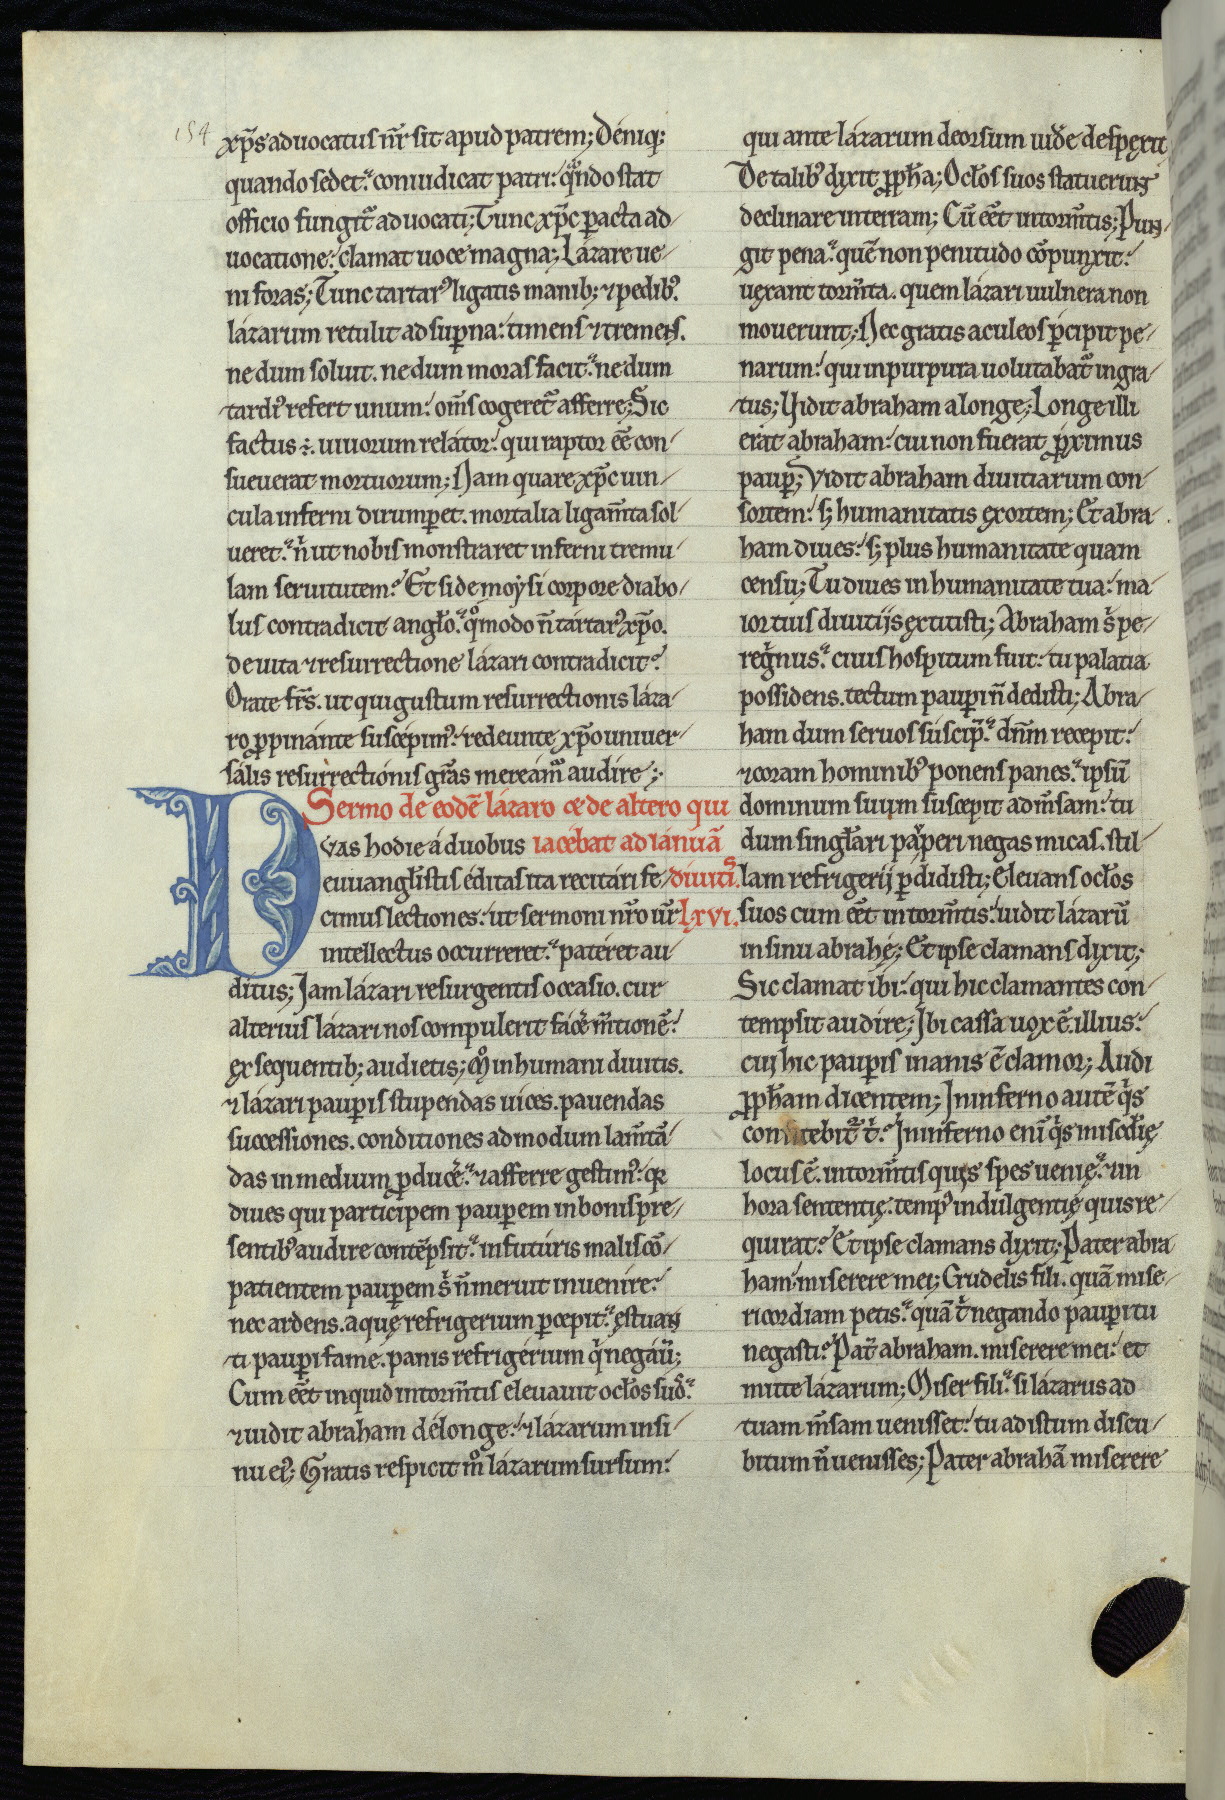 154
xp̄s aduocatus nr̄ sit apud patrem; Deniq;
quando sedet: coniudicat patri: qn̄do stat
officio fungit᷑ aduocati; Tunc xp̄c ꝑacta ad-
uocatione: clamat uoce magna; Lazare ue-
ni foras; Tunc tartarꝰ ligatis manib; ⁊ pedibꝰ.
lazarum retulit ad suꝑna: timens ⁊ tremens.
ne dum soluit. ne dum moras facit: ne dum
tardiꝰ refert unum: om̄s cogeret᷑ afferre; Sic
factus ÷. uiuorum relator: qui raptor ee᷒ con-
sueuerat mortuorum; Nam quare xp̄c uin-
cula inferni dirumꝑet. mortalia ligam̄ta sol-
ueret: n̄ ut nobis monstraret inferni tremu-
lam seruitutem? Et si de moysi corpore diabo-
lus contradicit angl̄o: qͦmodo n̄ tartarꝰ xp̄o.
de uita ⁊ resurrectione lazari contradicit?
Orate fr̄s. ut qui gustum resurrectionis laza-
ro ꝓpinante suscepimꝰ: redeunte xp̄o uniuer-
salis resurrectionis gr̄as mereamͬ audire;
Sermo de eodē lazaro et de altero qui
Dvas hodie a duobus iacebat ad ianuā
euuangl̄istis editas ita recitari fe- diuitis.
cimus lectiones: ut sermoni nr̄o ur̄ lxvi.
intellectus occurreret: pateret au-
ditus; Jam lazari resurgentis occasio. cur
alterius lazari nos compulerit facē m̄tionē:
ex sequentib; audietis; Mͦ inhumani diuitis.
⁊ lazari pauꝑis stupendas uices. pauendas
successiones. conditiones admodum lam̄tā-
das in medium ꝓducē: ⁊ afferre gestimꝰ: qr
diues qui participem pauꝑem in bonis pre-
sentibꝰ audire contēpsit: in futuris malis cō-
patientem pauꝑem s n̄ meruit inuenire:
nec ardens. aquę refrigerium ꝑcepit: ęstuan-
ti pauꝑi fame. panis refrigerium qͥ negau᷑;
Cum eēt inquid in torm̄tis eleuauit ocl̄os suos:
⁊ uidit abraham de longe: ⁊ lazarum in si-
nu eiꝰ; Gratis respicit mͦ lazarum sursum:
qui ante lazarum deorsum uidē despexit
De talibꝰ dixit ꝓph̄a; Ocl̄os suos statuerunt
declinare in terram; Cū eēt in torm̄tis; Pun-
git pena: quē non penitudo cōpunxit:
uexant torm̄ta. quem lazari uulnera non
mouerunt; Nec gratis aculeos ꝑcipit pe-
narum: qui in purpura uolutabat᷑ ingra-
tus; Vidit abraham a longe; Longe illi
erat abraham: cui non fuerat ꝓximus
pauꝑ; Vidit abraham diuitiarum con-
sortem: s; humanitatis exortem; Et abra-
ham diues: s; plus humanitate quam
censu; Tu diues in humanitate tua: ma-
ior tuis diuitijs extitisti; Abraham s pe-
reg̊nus: ciuis hospitum fuit: tu palatia
possidens. tectum pauꝑi n̄ dedisti; Abra-
ham dum seruos suscip᷑: dn̄m recepit:
⁊ coram hominibꝰ ponens panes: ipsū
dominum suum suscepit ad m̄sam: tu
dum singl̄ari paupe̍ri negas micas. stil-
lam refrigerij ꝑdidisti; Eleuans ocl̄os
suos cum eēt in torm̄tis: uidit lazarū
in sinu abrahę; Et ipse clamans dixit;
Sic clamat ibi: qui hic clamantes con-
tempsit audire; Jbi cassa uox ē. illius:
cui hic pauꝑis inanis ē clamor; Audi
ꝓph̄am dicentem; Jn inferno autē qͥs
confitebit᷑ t̍? Jn inferno enī qͥs misc̄dię
locus ē. in torm̄tis quęs spes uenię: ⁊ in
hora sententię: tempꝰ indulgentię quis re-
quirat? Et ipse clamans dixit; Pater abra-
ham: miserere mei; Crudelis fili. quā mise-
ricordiam petis: quā t̍ negando pauꝑi tu
negasti? Pat᷑ abraham. miserere mei: et
mitte lazarum; Miser fili: si lazarus ad
tuam m̄sam uenisset: tu ad istum discu-
bitum n̄ uenisses; Pater abrahā miserere